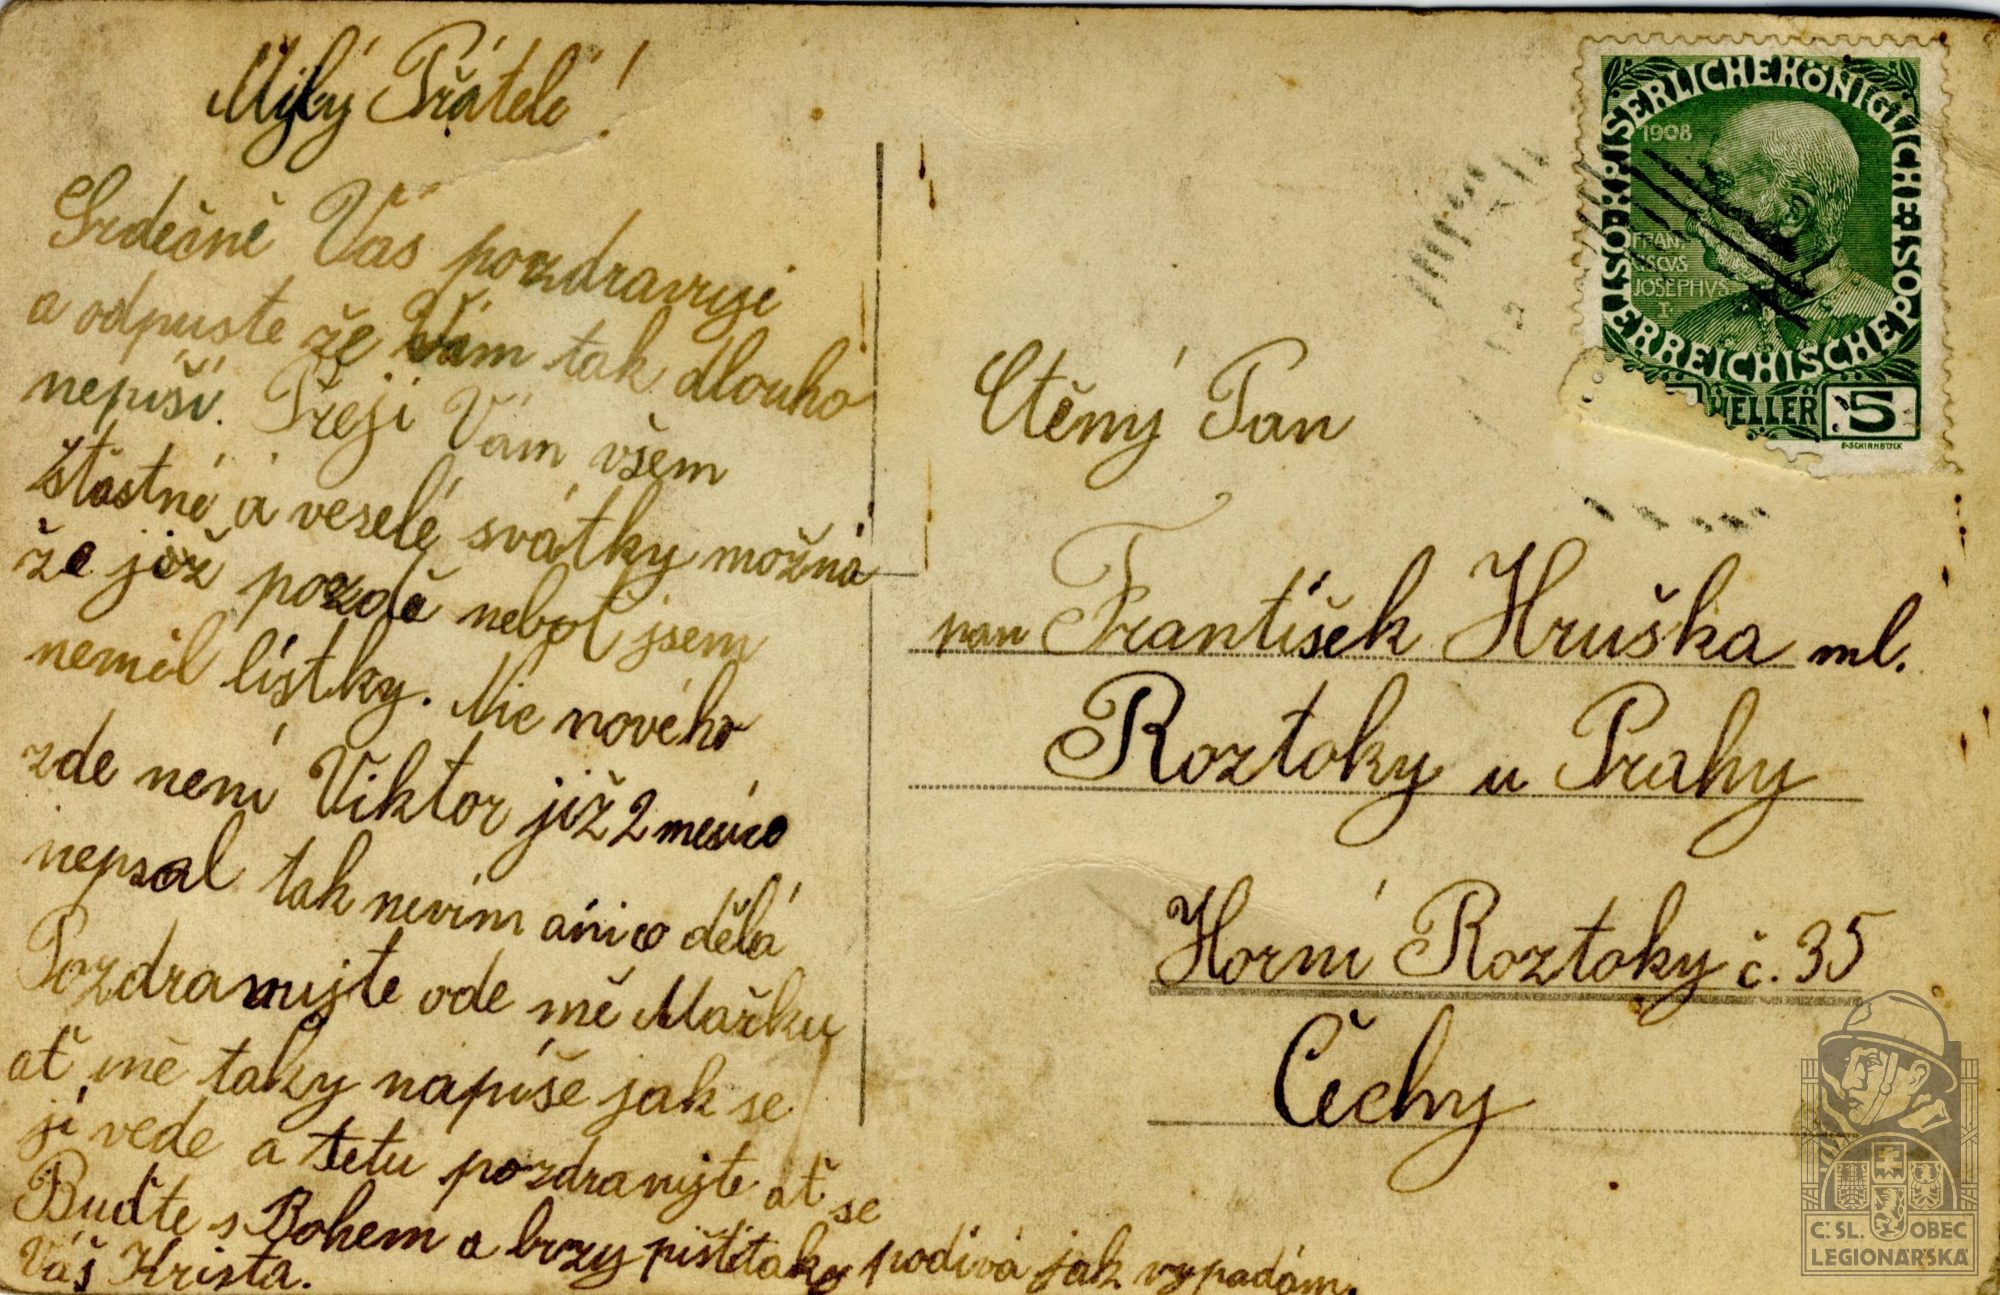 Milý Přátelé!
Srdečně Vás pozdravuji
a odpuste že Vám tak dlouho
nepíší. Přeji Vám všem
šťastné a veselé svátky možná
že již pozdě neboť jsem
neměl lístky. Nic nového
zde není Viktor již 2 mesíce
nepsal tak nevím ani co dělá
Pozdravujte ode mě Mařku
ať mě taky napíše jak se
jí vede a tetu pozdravujte ať se
Buďte s Bohem a brzy pište taky podívá jak vypadám.
Váš Krista.
KAISERLICHEKÖNIGLICHE ÖSTERREICHISCHEPOST
1908
FRAN
CISCVS
JOSEPHVS
I.
HELLER 5
F·SCHIRNBÖCK
Ctěný Pan
pan František Hruška ml.
Roztoky u Prahy
Horní Roztoky č. 35
Čechy
Č.SL. OBEC
LEGIONÁŘSKÁ